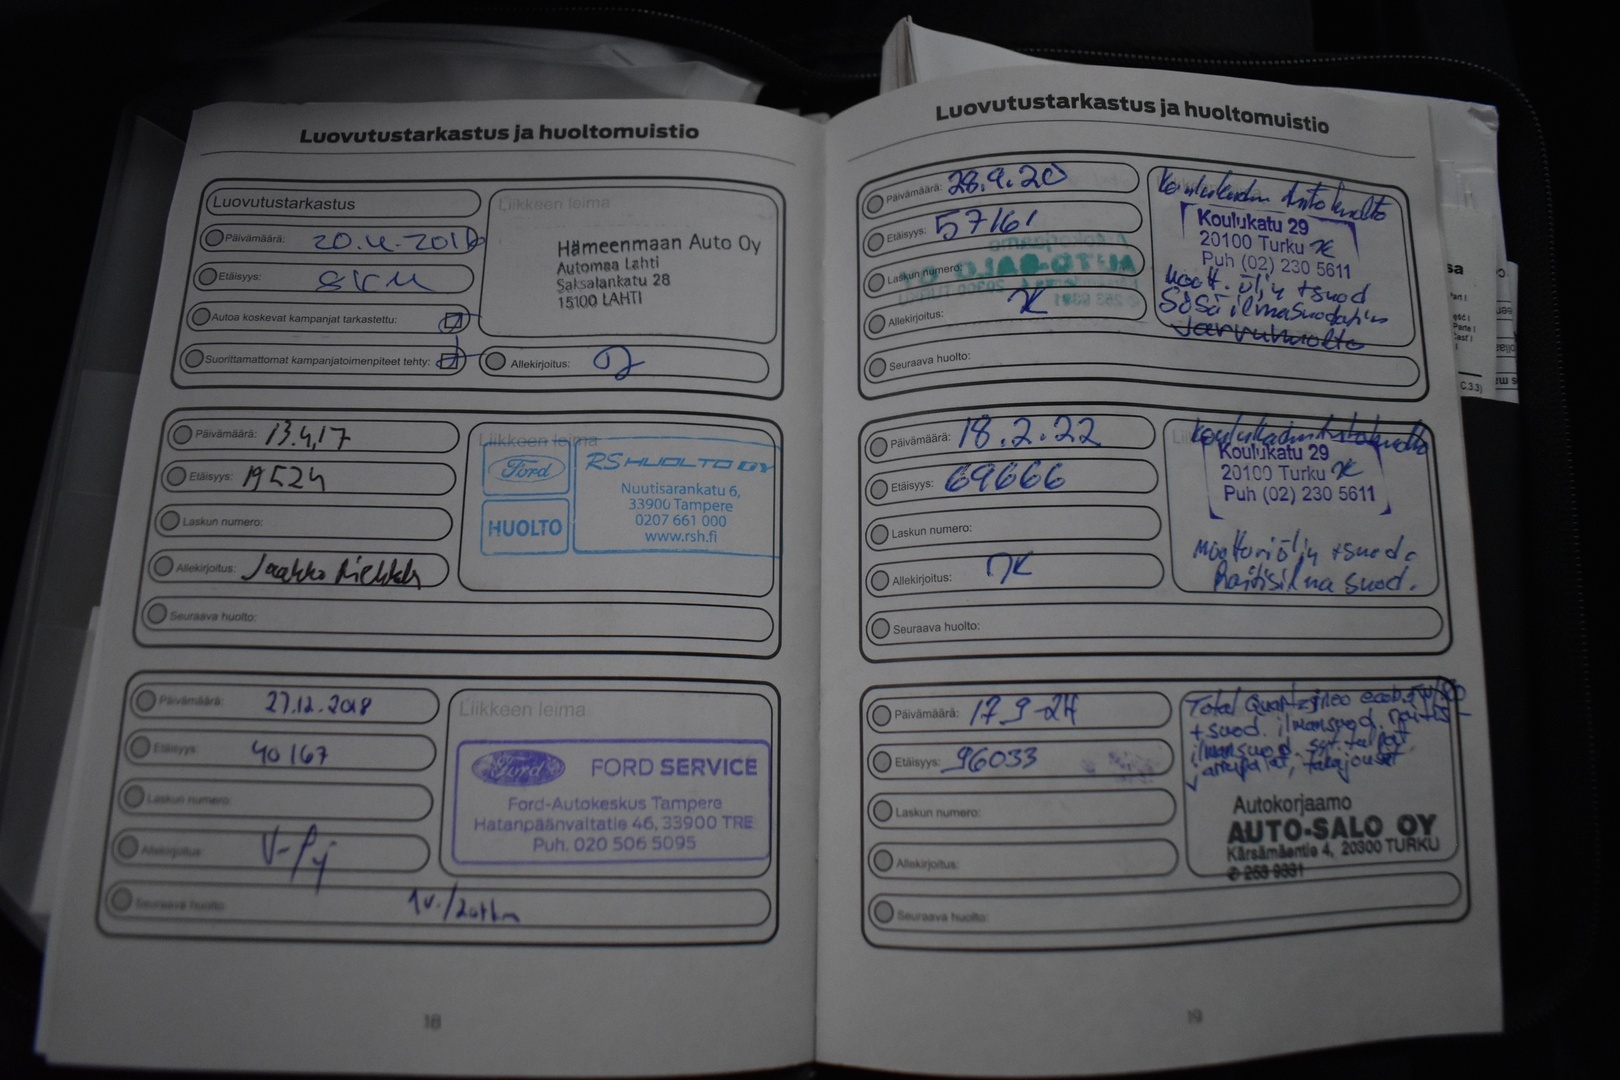 Luovutustarkastus ja huoltomuistio
Luovutustarkastus
Päivämäärä: 20.4.2016
Etäisyys:
Autoa koskevat kampanjat tarkastettu:
Suorittamattomat kampanjatoimenpiteet tehty:
Liikkeen leima
Hämeenmaan Auto Oy
Automaa Lahti
Saksalankatu 28
15100 LAHTI
Allekirjoitus:
Päivämäärä: 13.4.17
Etäisyys: 19524
Laskun numero:
Allekirjoitus: Jaakko
Seuraava huolto:
Liikkeen leima
Ford
HUOLTO
RS HUOLTO OY
Nuutisarankatu 6,
33900 Tampere
0207 661 000
www.rsh.fi
Päivämäärä: 27.12.2018
Etäisyys: 40167
Laskun numero:
Allekirjoitus:
Seuraava huolto: 1v./20tkm
Liikkeen leima
Ford
FORD SERVICE
Ford-Autokeskus Tampere
Hatanpäänvaltatie 46, 33900 TRE
Puh. 020 506 5095
18
Luovutustarkastus ja huoltomuistio
Päivämäärä: 28.9.20
Etäisyys: 57161
Laskun numero:
Allekirjoitus:
Seuraava huolto:
Koulukadun Autohuolto
Koulukatu 29
20100 Turku
Puh (02) 230 5611
Moott. öljy + suod
Sisäilmasuodatin
Jarruhuolto
Päivämäärä: 18.2.22
Etäisyys: 69666
Laskun numero:
Allekirjoitus:
Seuraava huolto:
Koulukadun Autohuolto
Koulukatu 29
20100 Turku
Puh (02) 230 5611
Moottoriöljy + suod.
Raitisilmasuod.
Päivämäärä: 17.9-24
Etäisyys: 96033
Laskun numero:
Allekirjoitus:
Seuraava huolto:
Total Quartz ineo ecob.
+ suod. ilmansuod. raitis-
ilmansuod. syt.tulpat
jarrupalat, takajouset
Autokorjaamo
AUTO-SALO OY
Kärsämäentie 4, 20300 TURKU
✆ 253 9331
19